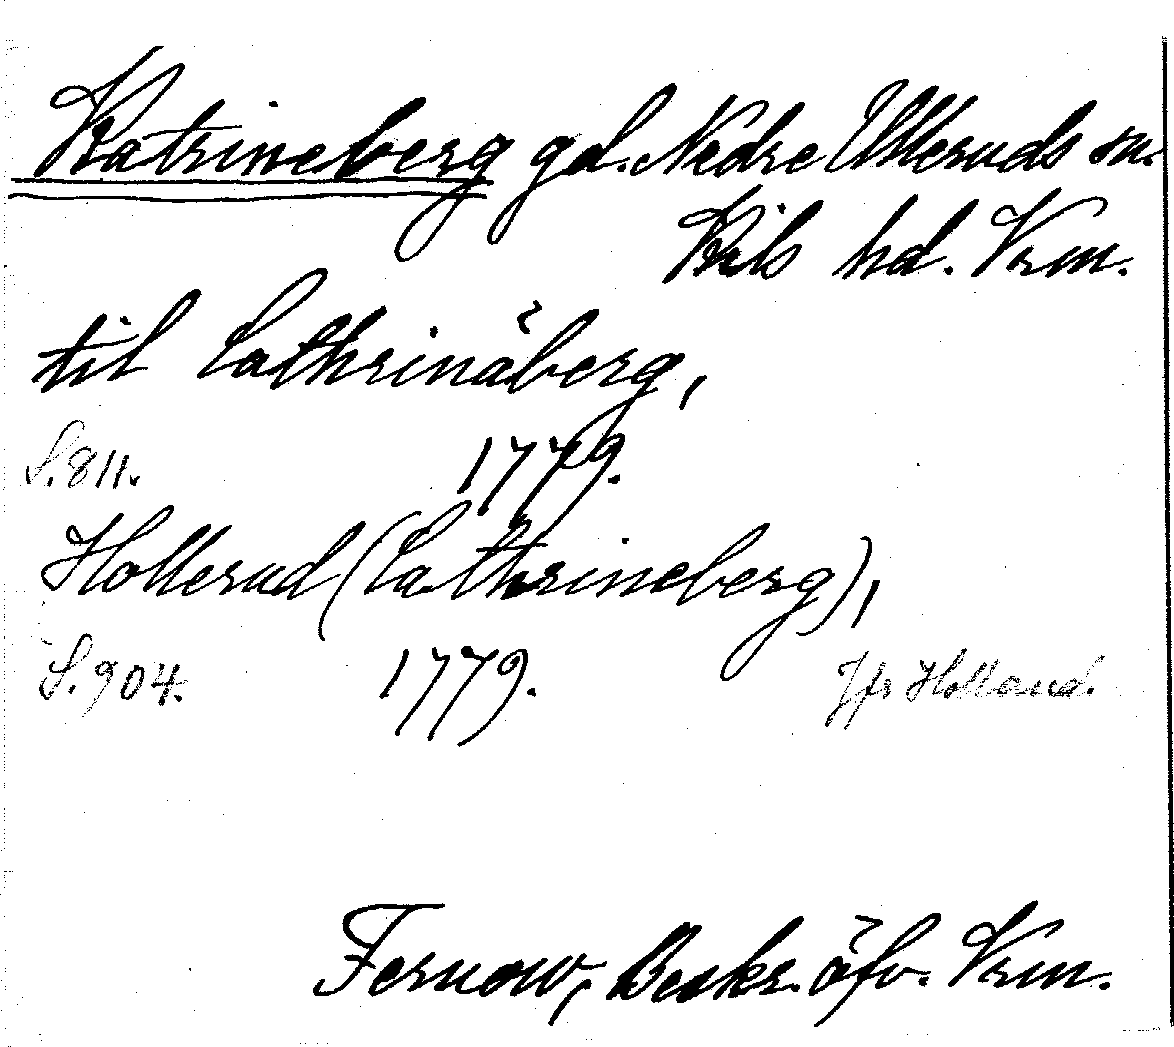 Katrineberg gd. Nedre Ulleruds sn.
Kils hd. Vrm.
til Cathrinäberg,
S. 811. 1779.
Hollerud (Cathrineberg),
S. 904. 1779. Jfr Holland.
Fernow, Beskr. öfv. Vrm.